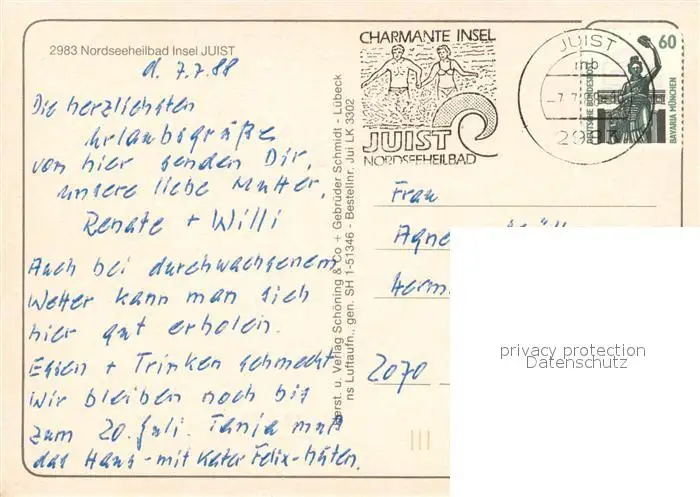 2983 Nordseeheilbad Insel JUIST
d. 7.7.88
Die herzlichsten
Urlaubsgrüße
von hier senden Dir,
unsere liebe Mutter,
Renate + Willi
Auch bei durchwachsenem
Wetter kann man sich
hier gut erholen.
Essen + Trinken schmeckt.
Wir bleiben noch bis
zum 20. Juli. Tanja muß
das Haus - mit Kater Felix - hüten.
Herst. u. Verlag Schöning & Co + Gebrüder Schmidt - Lübeck
ns Luftaufn., gen. SH 1-51346 - Bestellnr. Jui LK 3302
CHARMANTE INSEL
JUIST
NORDSEEHEILBAD
JUIST
mb
-7.7.88
2983
60
DEUTSCHE BUNDESPOST
BAVARIA MÜNCHEN
Frau
2070
privacy protection
Datenschutz